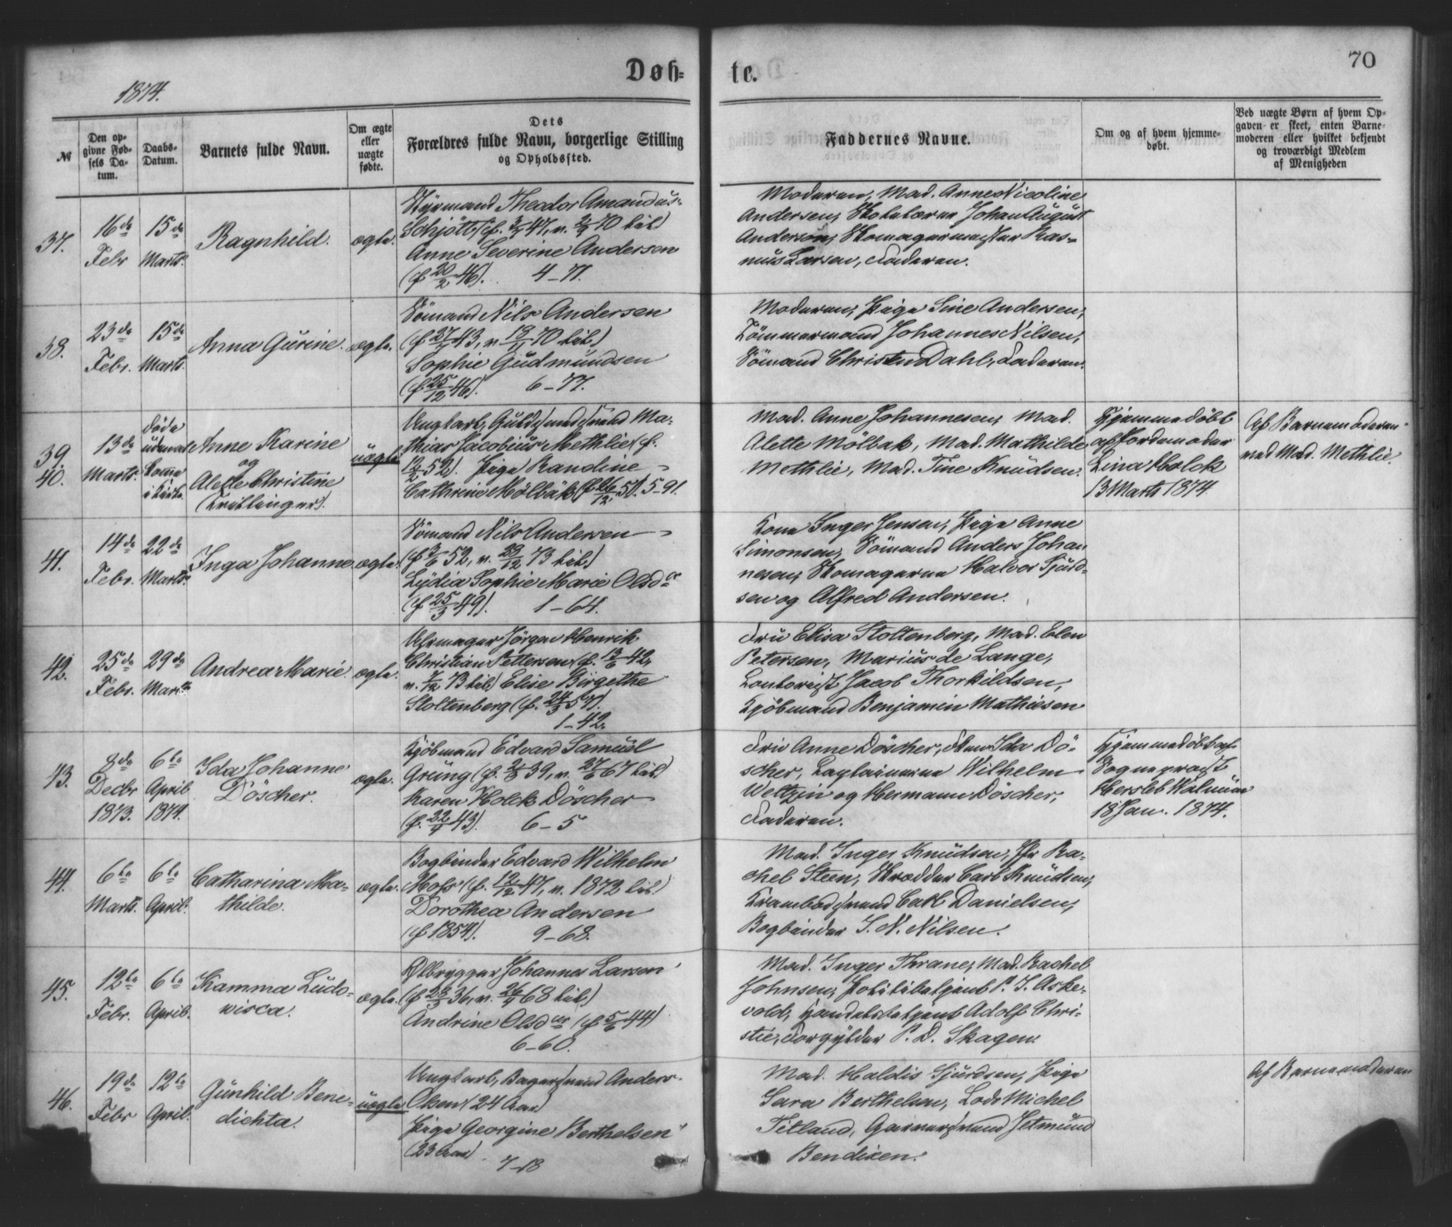 1874.
Døb-
te.
70
№
Den op-
givne Fød-
sels Da-
tum.
Daabs-
Datum.
Barnets fulde Navn.
Om ægte
eller
uægte
fødte.
Dets
Forældres fulde Navn, borgerlige Stilling
og Opholdssted.
Faddernes Navne.
Om og af hvem hjemme-
døbt.
Ved uægte Børn af hvem Op-
gaven er skeet, enten Barne-
moderen eller hvilket bekjendt
og troværdigt Medlem
af Menigheden
37.
16de
Febr
15de
Marts.
Ragnhild.
ægte.
Styrmand Theodor Amandus
Schjött (f. 47, v. 70 til)
Anne Severine Andersen
(f 20/2 46). 4-71.
Moderen, Mad. Anne Nicoline
Andersen, Johan August
Andersen, Skomagermester Ras-
mus Larsen, Faderen.
38.
23de
Febr.
15de
Marts.
Anna Gurine.
ægte.
Sömand Nils Andersen
(f 43, v. 70 til)
Sophie Gudmundsen
(f. 25/12 46). 6-77.
Moderen, Pige Sine Andersen,
Tömmermand Johannes Nilsen,
Sömand Christen Dahl, Faderen.
39
40.
13de
Marts.
döde
Anne Karine
og
Alette Christine
(Tvillinger).
uægte
Ungkarl, Guldsmedsvend Ma-
thias Jacobius Methlie (f.
52). Pige Randine
Cathrine Mölbak (f. 16/12 51. 5-91.
Mad. Anne Johannesen, Mad.
Alette Mölbak, Mad. Mathilde
Methlie, Mad. Tine Knudsen.
Hjemmedöbt
af Jordemoder
Lina Holck
13 Marts 1874
Af Barnemoderen
ved Mad. Methlie.
41.
14de
Febr.
22de
Marts.
Inga Johanne
ægte.
Sömand Nils Andersen
(f 52, v. 29/12 73 til)
Lydia Sophie Marie Olsdr
(f 25/3 49). 1-64.
Kone Inger Jensen, Pige Anne
Simonsen, Sömand Anders Johan-
nesen, Skomagerne Halvor
sen og Alfred Andersen.
42.
25de
Febr.
29de
Marts.
Andrea Marie.
ægte.
Uhrmager Jörgen Henrik
Christian Pettersen (f. 42,
v. 73 til) Elise Birgethe
Stoltenberg (f. 57).
1-42.
Fru Elisa Stoltenberg, Mad. Elen
Petersen, Marius de Lange,
Kontorist Jacob Thorkildsen,
Kjöbmand Benjamin Mathiesen
43.
8de
Decbr
1873.
6te
April
1874.
Ida Johanne
Döscher.
ægte.
Kjöbmand Edvard Samuel
Grüng (f. 39, v. 27/6 67 til)
Karen Holck Döscher
(f. 22/4 43). 6-5
Fru Anne Döscher, Ida Dö-
scher, Wilhelm
Weltzin og Hermann Döscher,
Faderen.
Hjemmedöbt af
Sogneprest
Hersleb Walnum
18 Jan. 1874.
44.
6te
Marts.
6te
April.
Catharina Ma-
thilde.
ægte.
Bogbinder Edvard Wilhelm
Moss (f. 47, v. 1872 til)
Dorothea Andersen
(f 1854). 9-68.
Mad. Inger Knudsen, Ra-
chel Steen, Skrædder Carl Knudsen,
Krambodsvend Carl Danielsen,
Bogbinder S. N. Nilsen.
45.
12te
Febr.
6te
April.
Kamma Ludo-
visca.
ægte.
Ölbrygger Johannes Larsen
(f 36, v. 26/4 68 til)
Andrine Olsdtr (f 44)
6-60.
Mad. Inger Thrane, Mad. Rachel
Johnsen, Politibetjent P. S. Aske-
vold, Handelsbetjent Adolf Chri-
stie, Forgylder P. D. Skagen.
46.
19de
Febr
12te
April.
Gunhild Bene-
dichta.
uægte
Ungkarl, Bagersvend Anders
Olsen (24 Aar)
Pige Georgine Berthelsen
(23 Aar) 7-18
Mad. Haldis Sjurdsen, Pige
Sara Berthelsen, Lods Michel
Titland, Garversvend Jetmund
Bendixen.
Af Barnemoderen